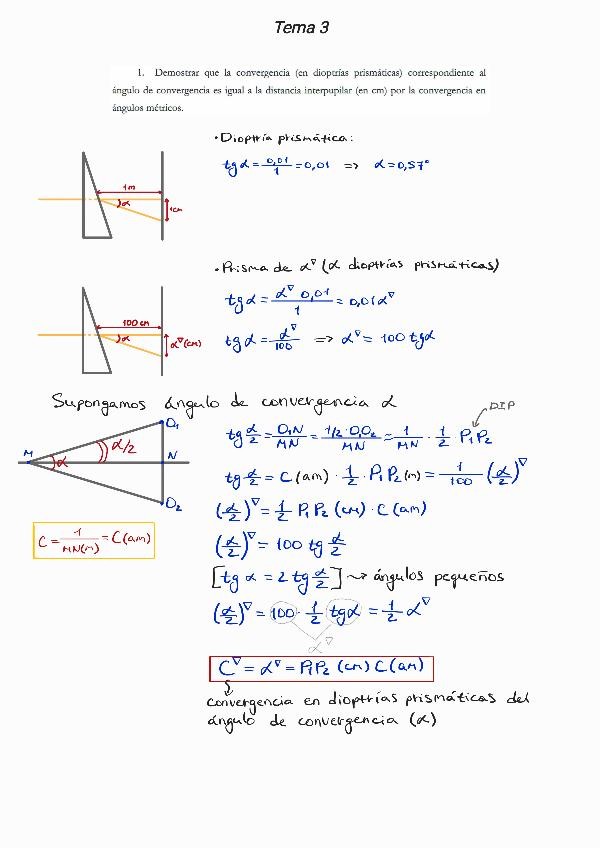 Tema 3
1. Demostrar que la convergencia (en dioptrías prismáticas) correspondiente al
ángulo de convergencia es igual a la distancia interpupilar (en cm) por la convergencia en
ángulos métricos.
• Dioptría prismática:
tg α = 0,01/1 = 0,01 => α = 0,57°
1m
α
1cm
• Prisma de α^∇ (α dioptrías prismáticas)
tg α = α^∇ 0,01/1 = 0,01 α^∇
100 cm
α
α^∇ (cm)
tg α = α^∇/100 => α^∇ = 100 tg α
Supongamos ángulo de convergencia α
DIP
tg α/2 = O₁N/MN = 1/2·O₁O₂/MN = 1/MN · 1/2 P₁P₂
O₁
M
α
α/2
N
O₂
tg α/2 = C (am) · 1/2 · P₁P₂ (m) = 1/100 (α/2)^∇
(α/2)^∇ = 1/2 P₁P₂ (cm) · C (am)
C = 1/MN(m) = C (am)
(α/2)^∇ = 100 tg α/2
[tg α = 2 tg α/2] → ángulos pequeños
(α/2)^∇ = 100 · 1/2 tg α = 1/2 α^∇
α^∇
C^∇ = α^∇ = P₁P₂ (cm) C (am)
convergencia en dioptrías prismáticas del
ángulo de convergencia (α)